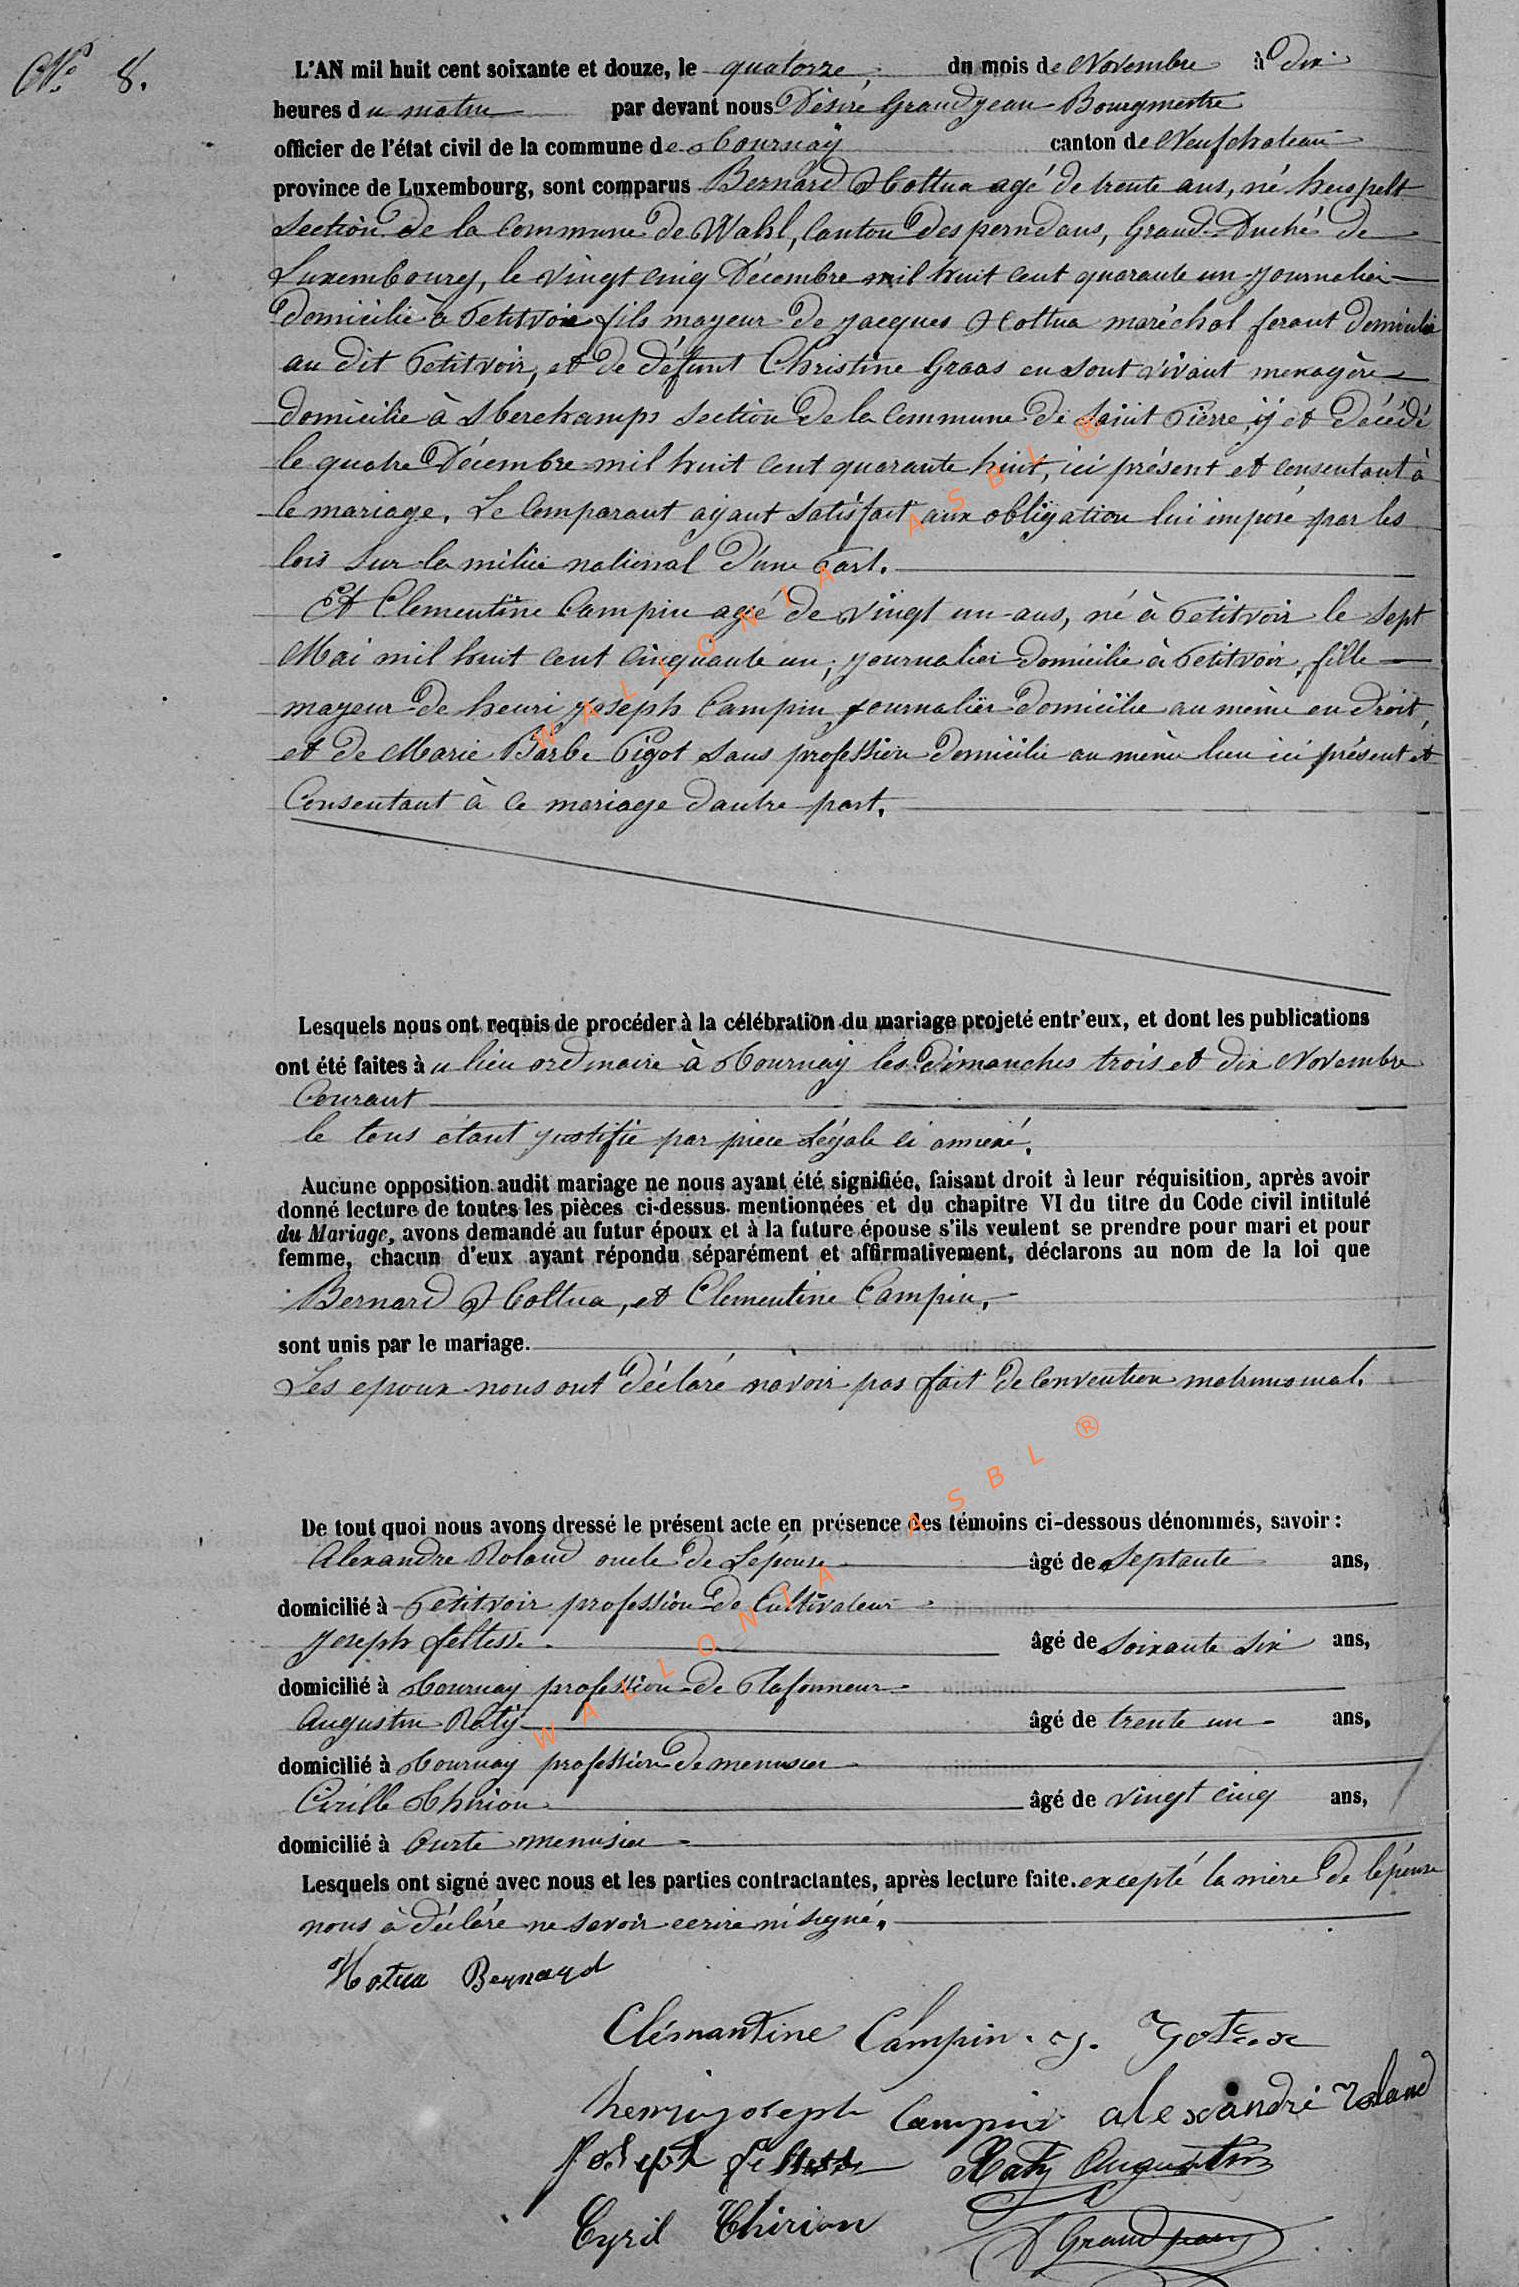 No 8.
L'AN mil huit cent soixante et douze, le quatorze, du mois de Novembre à Dix
heures du matin par devant nous Désiré Grandjean Bourgmestre
officier de l'état civil de la commune de Tournay canton de Neufchateau
province de Luxembourg, sont comparus Bernard Hottua agé de trente ans, né heispelt
section de la Commune de Wahl, Canton des perndans, Grand-Duché de
Luxembourg, le vingt cinq Décembre mil huit cent quarante un journalier
domicilié à Petitvoir fils mayeur de jacques Hottua maréchal ferant domicilié
au dit Petitvoir, et de défunt Christine Graas en sont vivant menagère
domicilie à Sberchamps section de la Commune de Saint Pierre, ÿ et décédé
le quatre Décembre mil huit cent quarante huit, ici présent et consentant à
ce mariage. Le Comparant ayant satisfait aux obligation lui imposé par les
lois sur la milice national d'une Part.
Et Clementine Campin agé de vingt un ans, né à Petitvoir le sept
Mai mil huit cent cinquante un, journalier domicilié à Petitvoir, fille
mayeur de henri joseph Campin journalier domicilie au même en droit,
et de Marie Barbe Pigot sans profession domicilie au même lieu ici présent et
Consentant à ce mariage dautre part.
Lesquels nous ont requis de procéder à la célébration du mariage projeté entr'eux, et dont les publications
ont été faites à u lieu ordinaire à Tournay les dimanches trois et dix Novembre
Courant
le tous étant justifie par piece Légale ci annexé.
Aucune opposition audit mariage ne nous ayant été signifiée, faisant droit à leur réquisition, après avoir
donné lecture de toutes les pièces ci-dessus mentionnées et du chapitre VI du titre du Code civil intitulé
du Mariage, avons demandé au futur époux et à la future épouse s'ils veulent se prendre pour mari et pour
femme, chacun d'eux ayant répondu séparément et affirmativement, déclarons au nom de la loi que
Bernard Hottua, et Clementine Campin,
sont unis par le mariage.
Les epoux nous ont déclaré navoir pas fait de Convention matrimonial.
De tout quoi nous avons dressé le présent acte en présence des témoins ci-dessous dénommés, savoir :
Alexandre Roland oncle de Lépouse âgé de Septante ans,
domicilié à Petitvoir profession de Cultivateur
Joseph feltesse âgé de soixante six ans,
domicilié à Tournay profession de Plafonneur
Augustin Raty âgé de trente un ans,
domicilié à Tournay profession de menusier
Cirille Thirion âgé de vingt cinq ans,
domicilié à Ourte menusier
Lesquels ont signé avec nous et les parties contractantes, après lecture faite. excepté la mère de lépouse
nous à déclaré ne savoir ecrire ni signé.
Hotua Bernard
Clémantine Campin. J.
henri joseph Campin alexandre Roland
Joseph feltesse Raty Augustin
Cyril Thirion D Grandjean
WALLONIA ASBL ®
WALLONIA ASBL ®